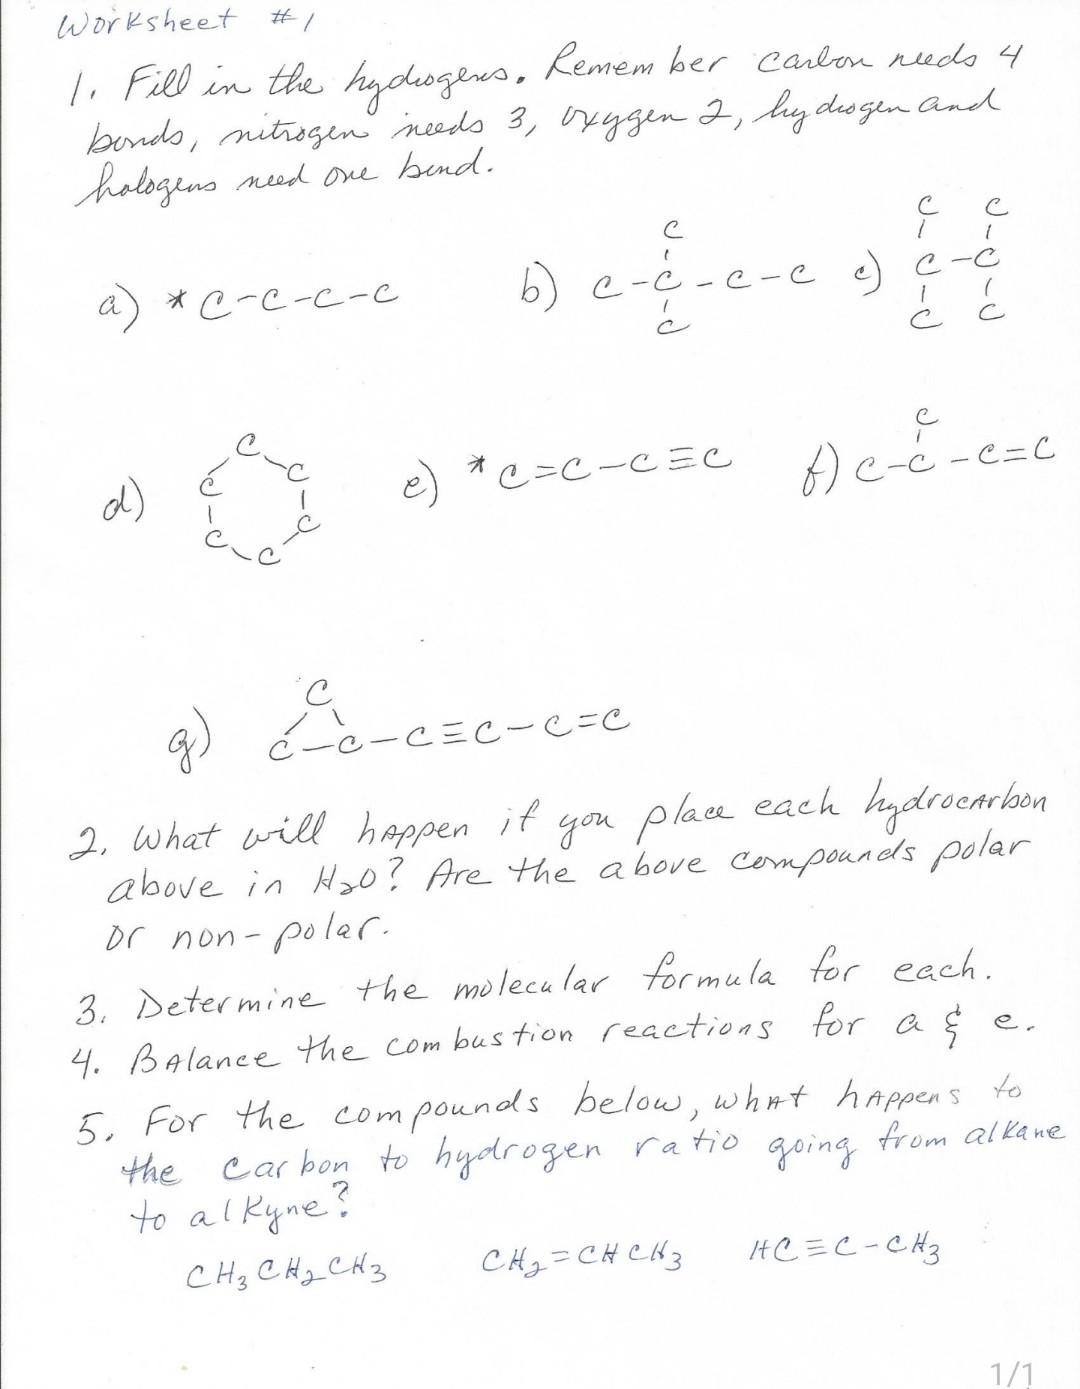 Worksheet #1
1. Fill in the hydrogens. Remember carbon needs 4
bonds, nitrogen needs 3, oxygen 2, hydrogen and
halogens need one bond.
C C C
a) *C-C-C-C b) C-C-C-C c) C-C
C C C
d) C C C C C C e) *C=C-C≡C f) C-C-C=C
C
C
g) C-C-C≡C-C=C
2. What will happen if you place each hydrocarbon
above in H₂O? Are the above compounds polar
or non-polar.
3. Determine the molecular formula for each.
4. Balance the combustion reactions for a & e.
5. For the compounds below, what happens to
the carbon to hydrogen ratio going from alkane
to alkyne?
CH₃CH₂CH₃ CH₂=CHCH₃ HC≡C-CH₃
1/1